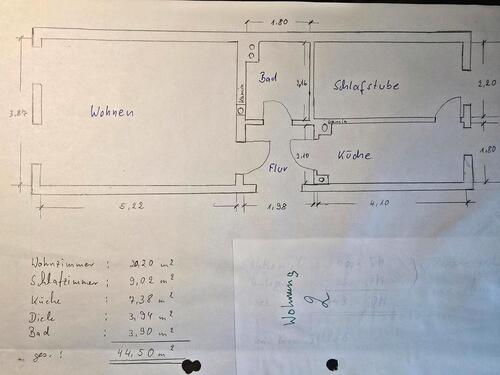 1.80
Bad
2,16
Kamin
Wohnen
3,87
Schlafstube
2,20
Kamin
Küche
1,80
Flur
2,10
5,22
1,98
4,10
Wohnzimmer : 20,20 m²
Schlafzimmer : 9,02 m²
Küche : 7,38 m²
Diele : 3,94 m²
Bad : 3,90 m²
ges. : 44,50 m²
Wohnung
2